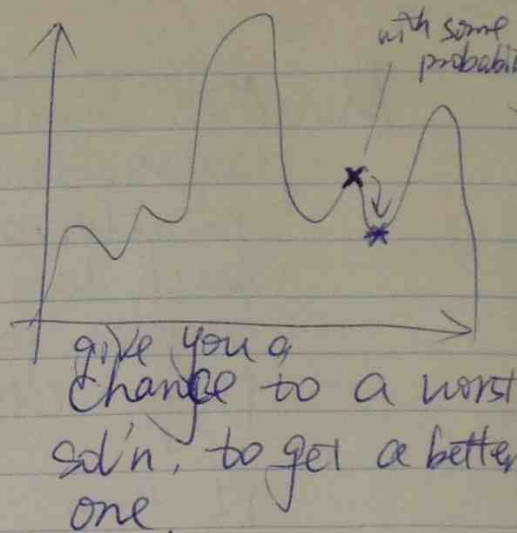 with some
probabil
give you a
chance to a worst
sol'n, to get a better
one.